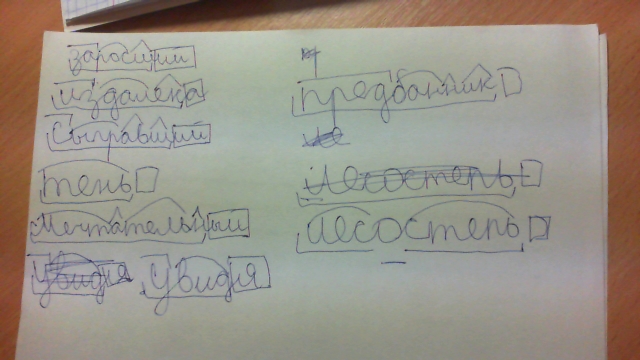 заросший
издалека
Сыгравший
тень
Мечтательный
увидя увидя
предбанник
лесостепь
лесостепь